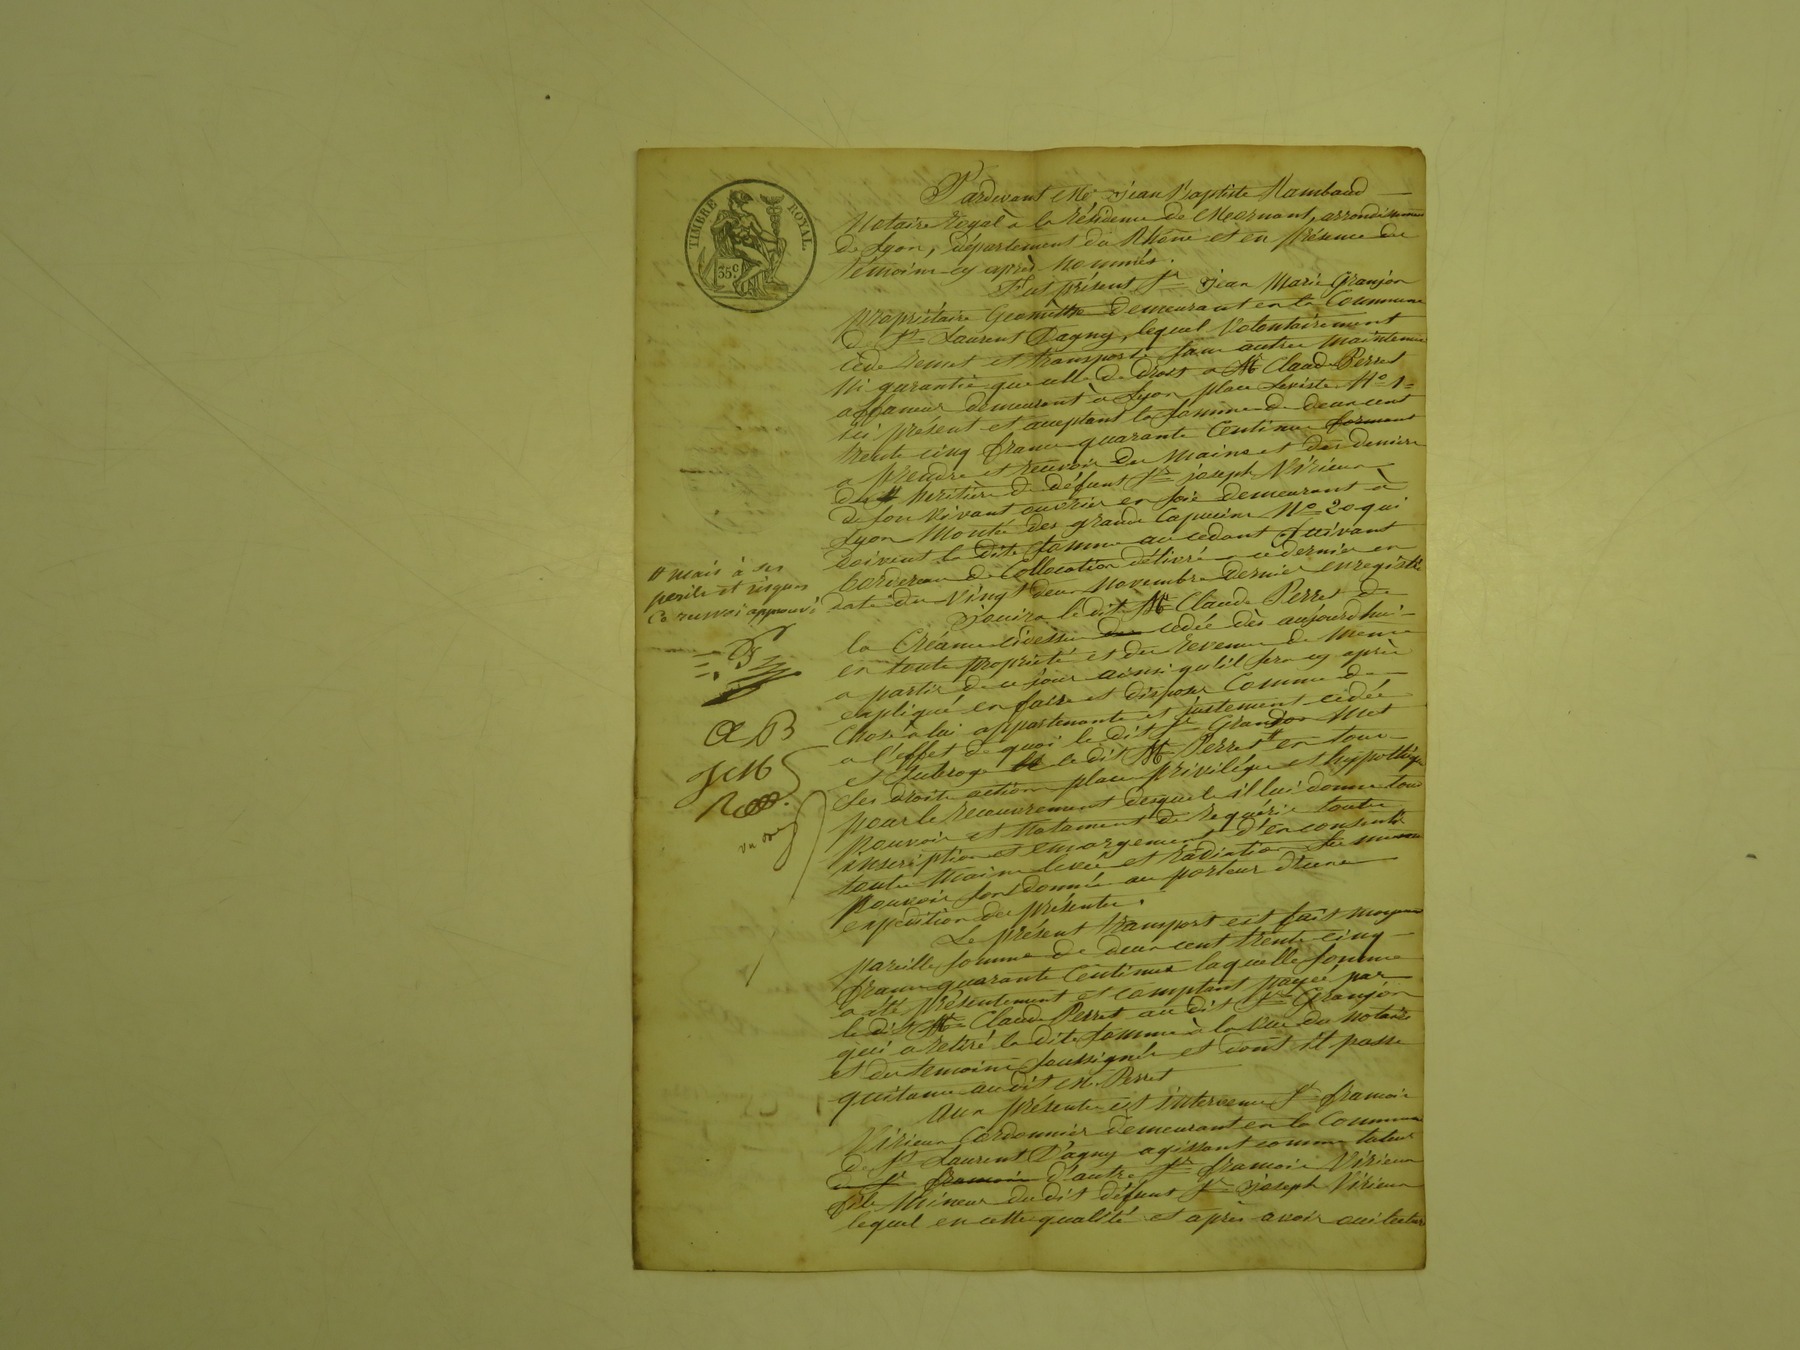 TIMBRE ROYAL.
35c.
Pardevant Me Jean Baptiste Rambaud
Notaire Royal à la Résidence de Mornant, arrondissement
de Lyon, département du Rhône et en présence des
témoins cy après nommés.
Fut présent Sr Jean Marie Granjon
propriétaire Géomètre demeurant en la Commune
de St Laurent Dagny, lequel Volontairement
cède remet et transporte sans autre maintenue
Ni garantie que celle de droit a Mr Claude Perret
affaneur demeurant à Lyon place Leviste No 1
ici présent et acceptant la somme de deux cent
trente cinq francs quarante Centimes
a prendre et recevoir des mains et des deniers
des héritiers de défunt Sr joseph Virieux
de son vivant ouvrier en soie demeurant à
Lyon Montée des grands Capucins No 20 qui
doivent la dite somme au cédant suivant
bordereau de Collocation délivré a ce dernier en
date du Vingt deux Novembre dernier enregistré
Jouira le dit Mr Claude Perret de
la Créance cidessus cédée dès aujourdhui
en toute propriété et des revenus de même
a partir de ce jour ainsi qu'il sera cy après
expliqué en faire et disposer Comme de
Chose a lui appartenante et justement cédée
a l'effet de quoi le dit Sr Granjon Met
et Subroge le dit Mr Perret # en tous
Ses droits action place privilége et hypothèque
pour le recouvrement desquels il lui donne tous
pouvoir et notament de requérir toutes
inscription et emargement d'en consentir
toutes Mains levée et radiation
Pouvoir sont donnés au porteur d'une
expédition des présentes.
Le présent transport est fait moyennant
pareille somme de deux cent trente cinq
francs quarante Centimes laquelle somme
a été présentement et comptant payée par
le dit Mr Claude Perret au dit Sr Granjon
qui a retiré la dite somme à la vue du notaire
et des temoins soussignés et dont il passe
quittance au dit Mr Perret
Aux présentes est intervenu Sr françois
Virieux Cordonnier demeurant en la Commune
de St Laurent D'agny agissant comme tuteur
d'autre Sr françois Virieux
fils Mineur du dit défunt Sr Joseph Virieux
lequel en cette qualité et après avoir oui lecture
# mais à ses
perils et risques
Ce renvoi approuvé